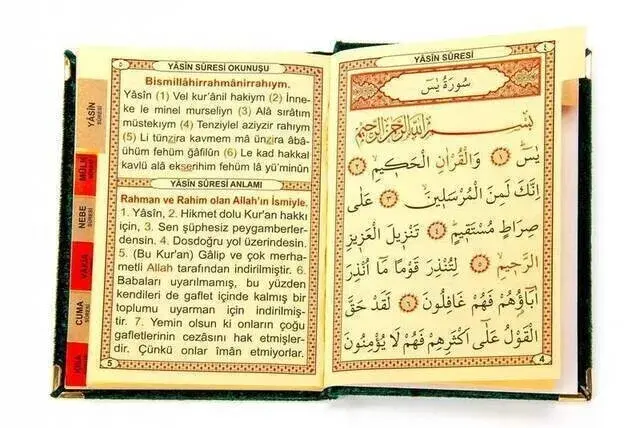 ٥
YÂSÎN SÛRESİ OKUNUŞU
Bismillâhirrahmânirrahıym.
Yâsîn (1) Vel kur'ânil hakiym (2) İnne-
ke le minel murseliyn (3) Alâ sırâtım
müstekıym (4) Tenziylel aziyzir rahıym
(5) Li tünzira kavmem mâ ünzira âbâ-
ühüm fehüm ğâfilûn (6) Le kad hakkal
kavlü alâ ekserihim fehüm lâ yü'minûn
YÂSÎN SÛRESİ ANLAMI
Rahman ve Rahim olan Allah'ın İsmiyle.
1. Yâsîn, 2. Hikmet dolu Kur'an hakkı
için, 3. Sen şüphesiz peygamberler-
densin. 4. Dosdoğru yol üzerindesin.
5. (Bu Kur'an) Gâlip ve çok merha-
metli Allah tarafından indirilmiştir. 6.
Babaları uyarılmamış, bu yüzden
kendileri de gaflet içinde kalmış bir
toplumu uyarman için indirilmiş-
tir. 7. Yemin olsun ki onların çoğu
gafletlerinin cezasını hak etmişler-
dir. Çünkü onlar îman etmiyorlar.
5
YÂSÎN
SÛRESİ
MÜLK
NEBE
SÛRESİ
VAKIA
CUMA
SÛRESİ
YÂSÎN SÛRESİ
٤
سُورَةُ يٰسٓ
بِسْمِ اللّٰهِ الرَّحْمٰنِ الرَّحِيمِ
يٰسٓ ﴿١﴾ وَالْقُرْاٰنِ الْحَكِيمِ ﴿٢﴾
اِنَّكَ لَمِنَ الْمُرْسَلِينَ ﴿٣﴾ عَلٰى
صِرَاطٍ مُسْتَقِيمٍ ﴿٤﴾ تَنْزِيلَ الْعَزِيزِ
الرَّحِيمِ ﴿٥﴾ لِتُنْذِرَ قَوْمًا مَٓا اُنْذِرَ
اٰبَٓاؤُهُمْ فَهُمْ غَافِلُونَ ﴿٦﴾ لَقَدْ حَقَّ
الْقَوْلُ عَلٰٓى اَكْثَرِهِمْ فَهُمْ لَا يُؤْمِنُونَ
4